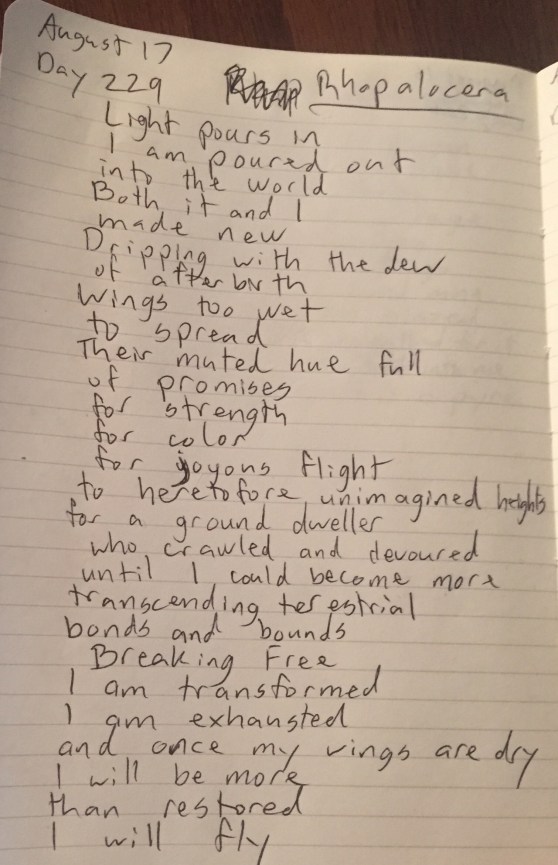 August 17
Day 229
Rhopalocera
Light pours in
I am poured out
into the world
Both it and I
made new
Dripping with the dew
of afterbirth
Wings too wet
to spread
Their muted hue full
of promises
for strength
for color
for joyous flight
to heretofore unimagined heights
for a ground dweller
who crawled and devoured
until I could become more
transcending terestrial
bonds and bounds
Breaking Free
I am transformed
I am exhausted
and once my wings are dry
I will be more
than restored
I will fly